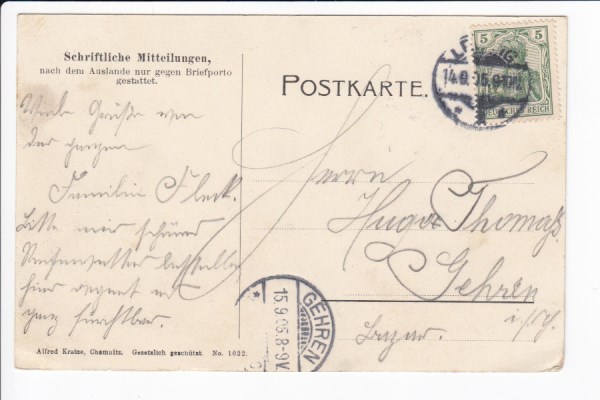 Schriftliche Mitteilungen,
nach dem Auslande nur gegen Briefporto
gestattet.
POSTKARTE.
5 5
DEUTSCHES REICH
14.9.
Viele Grüße von
der ganzen
Familie Fleck.
Bitte mir schönes
bestellen
hier regnet es
ganz furchtbar.
Herrn
Hugo Thomas
Gehren
i. Th.
Bazar.
GEHREN
15.9.05.8-9V.
Alfred Kratze, Chemnitz. Gesetzlich geschützt. No. 1032.